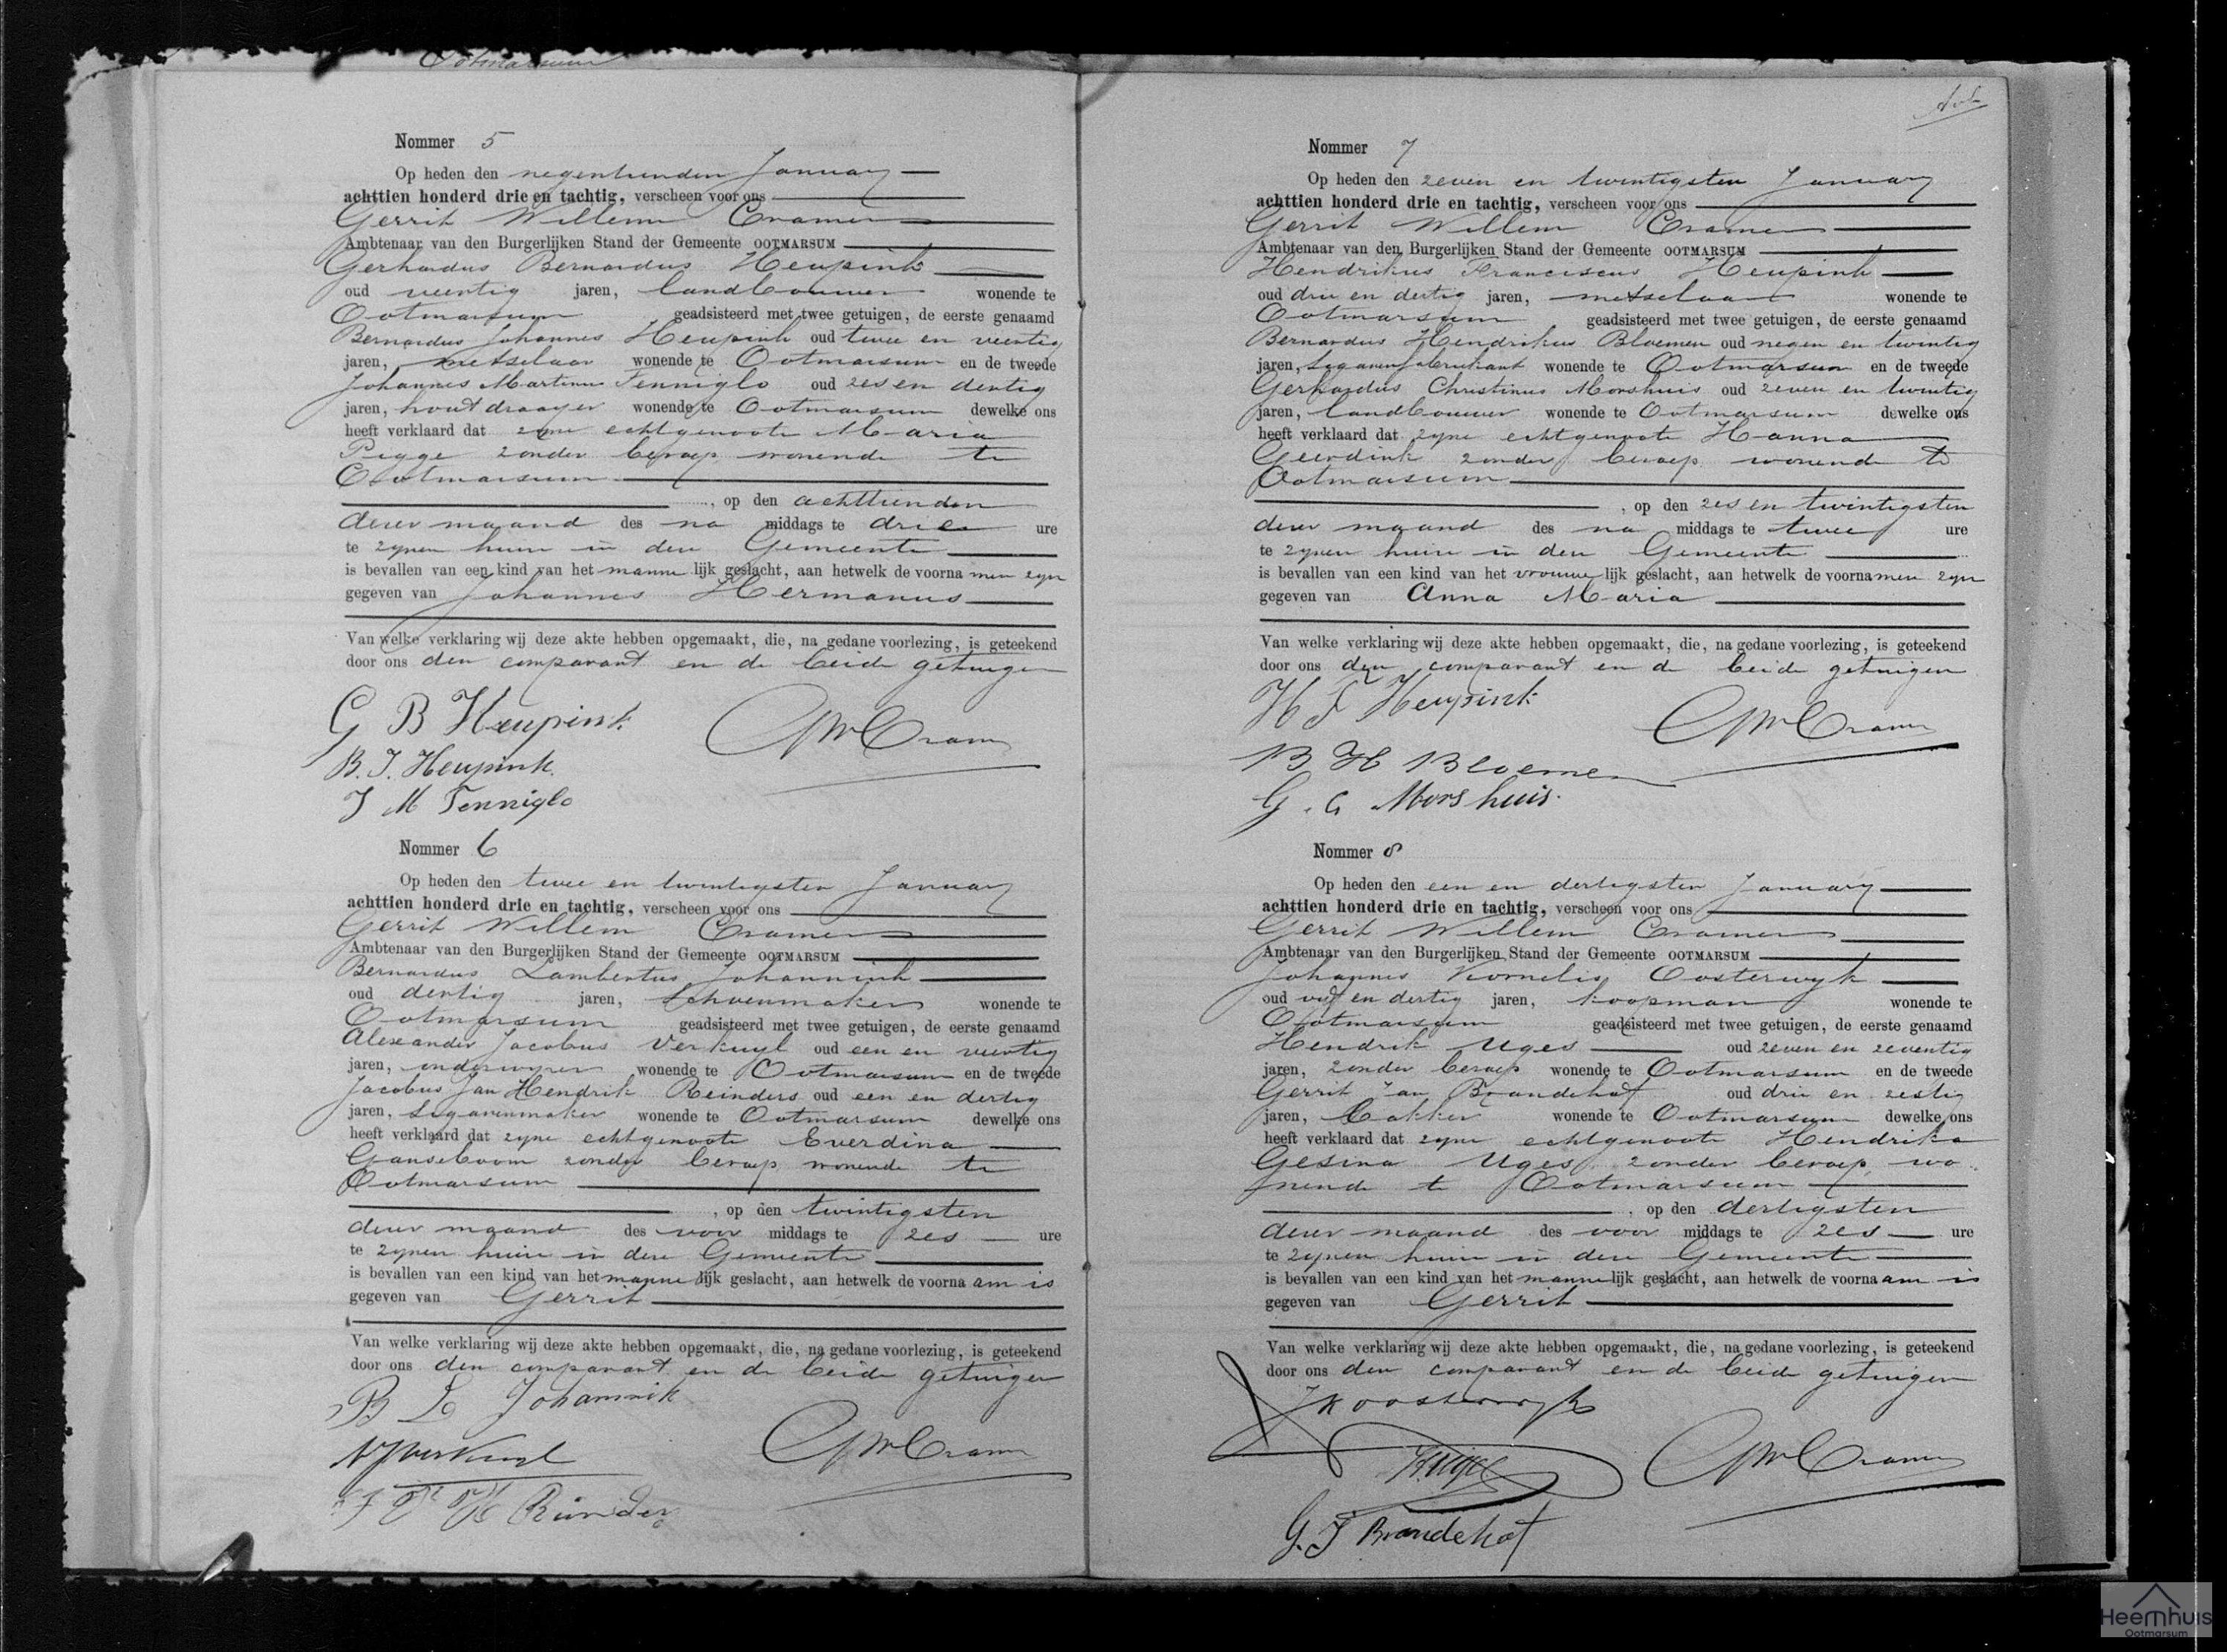 Ootmarsum
Nommer 5
Op heden den negentienden January
achttien honderd drie en tachtig, verscheen voor ons
Gerrit Willem Cramer
Ambtenaar van den Burgerlijken Stand der Gemeente OOTMARSUM
Gerhardus Bernardus Heupink
oud veertig jaren, landbouwer wonende te
Ootmarsum geadsisteerd met twee getuigen, de eerste genaamd
Bernardus Johannes Heupink oud twee en veertig
jaren, metselaar wonende te Ootmarsum en de tweede
Johannes Martinus Tenniglo oud zes en dertig
jaren, houtdraayer wonende te Ootmarsum dewelke ons
heeft verklaard dat zyne echtgenoote Maria
Pigge zonder beroep wonende te
Ootmarsum
, op den achttienden
dezer maand des na middags te drie ure
te zynen huize in deze Gemeente
is bevallen van een kind van het mannelijk geslacht, aan hetwelk de voornamen zyn
gegeven van Johannes Hermanus
Van welke verklaring wij deze akte hebben opgemaakt, die, na gedane voorlezing, is geteekend
door ons den comparant en de beide getuigen
G B Heupink
GW Cramer
B. J. Heupink.
J M Tenniglo
Nommer 6
Op heden den twee en twintigsten January
achttien honderd drie en tachtig, verscheen voor ons
Gerrit Willem Cramer
Ambtenaar van den Burgerlijken Stand der Gemeente OOTMARSUM
Bernardus Lambertus Johannink
oud dertig jaren, schoenmaker wonende te
Ootmarsum geadsisteerd met twee getuigen, de eerste genaamd
Alexander Jacobus Verkuyl oud een en veertig
jaren, onderwyzer wonende te Ootmarsum en de tweede
Jacobus Jan Hendrik Reinders oud een en dertig
jaren, sigarenmaker wonende te Ootmarsum dewelke ons
heeft verklaard dat zyne echtgenoote Everdina
Ganseboom zonder beroep wonende te
Ootmarsum
, op den twintigsten
dezer maand des voor middags te zes ure
te zynen huize in deze Gemeente
is bevallen van een kind van het mannelijk geslacht, aan hetwelk de voornaam is
gegeven van Gerrit
Van welke verklaring wij deze akte hebben opgemaakt, die, na gedane voorlezing, is geteekend
door ons den comparant en de beide getuigen
B L Johannik
AJ Verkuyl
GW Cramer
J J H Reinders
Nommer 7
Op heden den zeven en twintigsten January
achttien honderd drie en tachtig, verscheen voor ons
Gerrit Willem Cramer
Ambtenaar van den Burgerlijken Stand der Gemeente OOTMARSUM
Hendrikus Franciscus Heupink
oud drie en dertig jaren, metselaar wonende te
Ootmarsum geadsisteerd met twee getuigen, de eerste genaamd
Bernardus Hendrikus Bloemen oud negen en twintig
jaren, sigarenfabrikant wonende te Ootmarsum en de tweede
Gerhardus Christinus Morshuis oud zeven en twintig
jaren, landbouwer wonende te Ootmarsum dewelke ons
heeft verklaard dat zyne echtgenoote Hanna
Geerdink zonder beroep wonende te
Ootmarsum
, op den zes en twintigsten
dezer maand des na middags te twee ure
te zynen huize in deze Gemeente
is bevallen van een kind van het vrouwelijk geslacht, aan hetwelk de voornamen zyn
gegeven van Anna Maria
Van welke verklaring wij deze akte hebben opgemaakt, die, na gedane voorlezing, is geteekend
door ons den comparant en de beide getuigen
H F Heupink
GW Cramer
B H Bloemen
G. C Morshuis.
Nommer 8
Op heden den een en dertigsten January
achttien honderd drie en tachtig, verscheen voor ons
Gerrit Willem Cramer
Ambtenaar van den Burgerlijken Stand der Gemeente OOTMARSUM
Johannes Kornelis Oosterwyk
oud vyf en dertig jaren, koopman wonende te
Ootmarsum geadsisteerd met twee getuigen, de eerste genaamd
Hendrik Uges oud zeven en zeventig
jaren, zonder beroep wonende te Ootmarsum en de tweede
Gerrit Jan Brandehof oud drie en zestig
jaren, bakker wonende te Ootmarsum dewelke ons
heeft verklaard dat zyne echtgenoote Hendrika
Gesina Uges zonder beroep wo
nende te Ootmarsum
, op den dertigsten
dezer maand des voor middags te zes ure
te zynen huize in deze Gemeente
is bevallen van een kind van het mannelijk geslacht, aan hetwelk de voornaam is
gegeven van Gerrit
Van welke verklaring wij deze akte hebben opgemaakt, die, na gedane voorlezing, is geteekend
door ons den comparant en de beide getuigen
JK Oosterwyk
H. Uges
GW Cramer
G. J Brandehof
Heemhuis
Ootmarsum